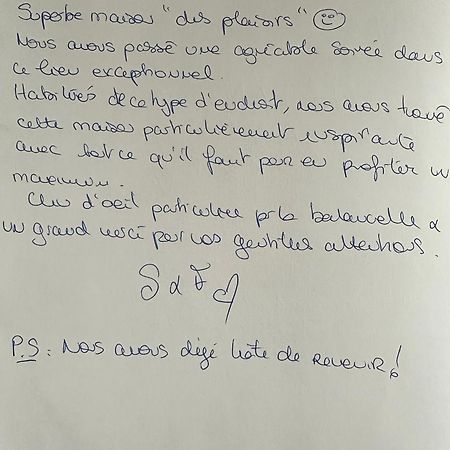 Superbe maison "des plaisirs" ☺
Nous avons passé une agréable soirée dans
ce lieu exceptionnel.
Habitués de ce type d'endroit, nous avons trouvé
cette maison particulièrement inspirante
avec tout ce qu'il faut pour en profiter un
maximum.
Clin d'oeil particulier pr la balancelle &
un grand merci pour vos gentilles attentions.
S & F ♡
P.S : Nous avons déjé hâte de REVENIR !